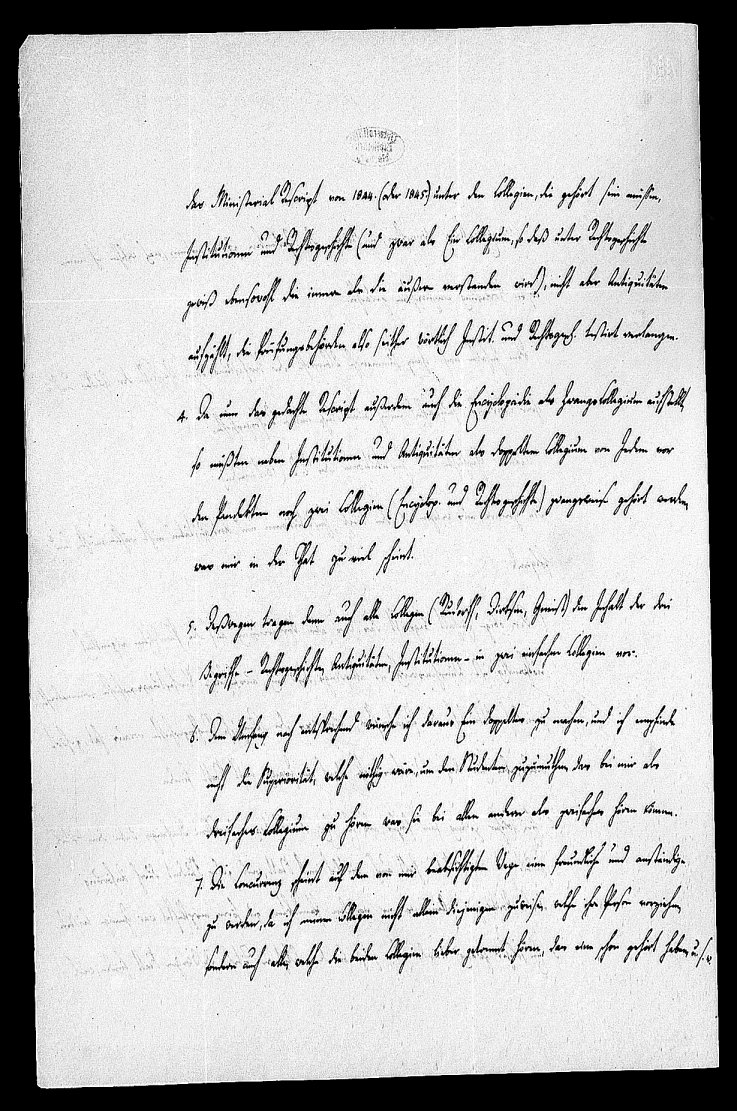 das Ministerial Rescript von 1844. (oder 1845) unter den Collegien, die gehört sein müssen,
Institutionen und Rechtsgeschichte (und zwar als Ein Collegium, so daß unter Rechtsgeschichte
gewiß ebensowohl die innere als die äußere verstanden wird), nicht aber Antiquitäten
aufzählt, die Prüfungsbehörden also seither wörtlich Instit. und Rechtsgesch. testirt verlangen.
4. Da nun das gedachte Rescript außerdem auch die Encyclopädie als Zwangscollegium aufstellt,
so müßten neben Institutionen und Antiquitäten als doppeltem Collegium von Jedem vor
den Pandekten noch zwei Collegien (Encyclop. und Rechtsgeschichte) zwangsweise gehört werden,
was mir in der That zu viel scheint.
5. Deßwegen tragen denn auch alle Collegen (Rudorff, Dirksen, Gneist) den Inhalt der drei
Begriffe – Rechtsgeschichte, Antiquitäten, Institutionen – in zwei einfachen Collegien vor.
6. Dem Umfang nach entsprechend wünsche ich daraus Ein doppeltes zu machen, und ich empfinde
nicht die Superiorität, welche nöthig wäre, um den Studenten zuzumuthen, das bei mir als
dreifaches Collegium zu hören was sie bei allen andern als zweifaches hören können.
7. Die Concurrenz scheint auf dem von mir beabsichtigten Wege eine freundliche und anständige
zu werden, da ich meinen Collegen nicht allein diejenigen zuweise, welche ihre Person vorziehen,
sondern auch alle, welche die beiden Collegien lieber getrennt hören, das eine schon gehört haben, u. s. w.